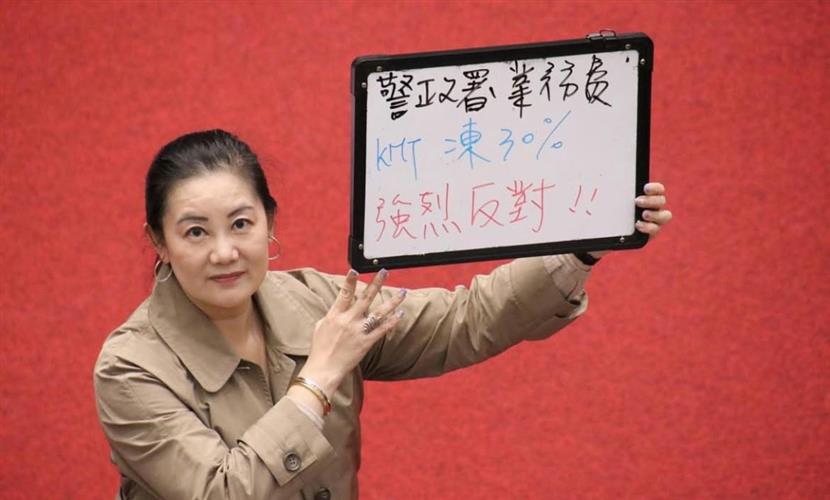 警政署業務費
KMT 凍30%
強烈反對!!